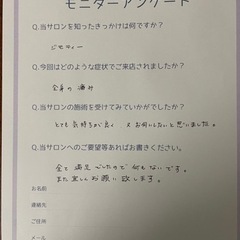 モニターアンケート
Q.当サロンを知ったきっかけは何ですか?
ジモティー
Q.今回はどのような症状でご来店されましたか?
全身の痛み
Q.当サロンの施術を受けてみていかがでしたか?
とても気持ちが良く 又お伺いしたいと思いました。
Q.当サロンへのご要望等あればお書きください。
全て満足でしたので何もないです。
また宜しくお願い致します。
お名前
連絡先
ご住所
メール